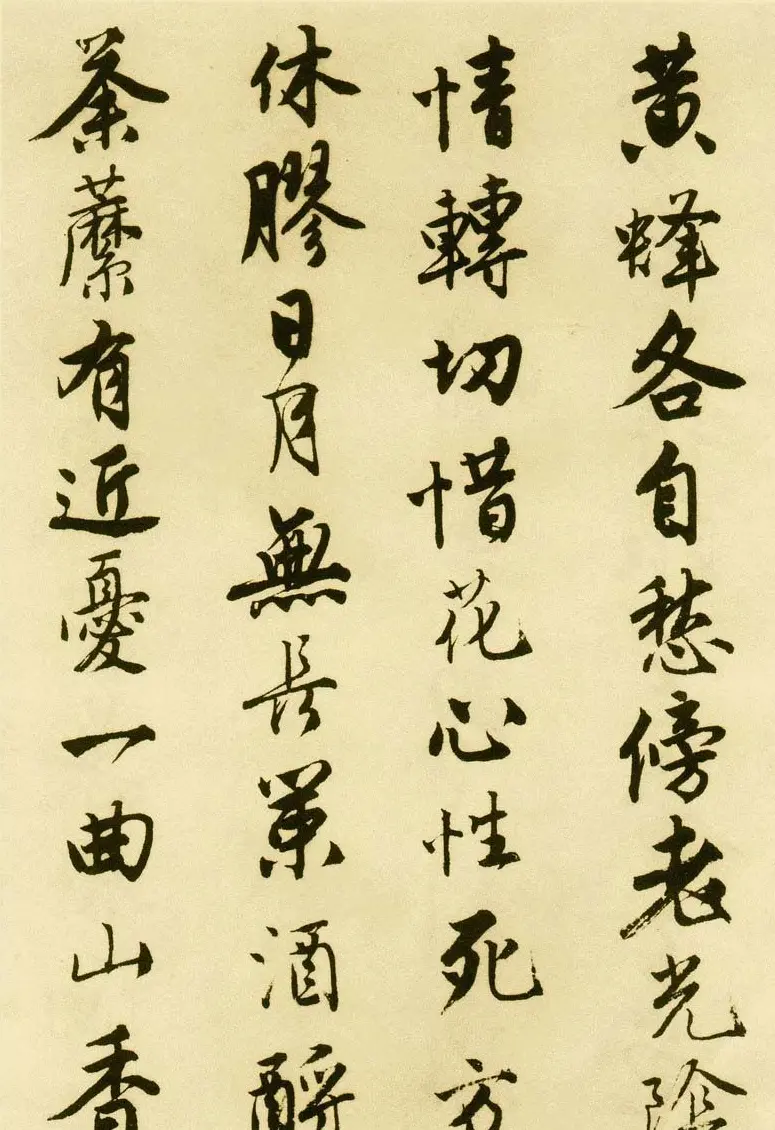 黄蜂各自愁傍老光陰
情轉切惜花心性死方
休膠日月無長策酒酹
荼䕷有近憂一曲山香